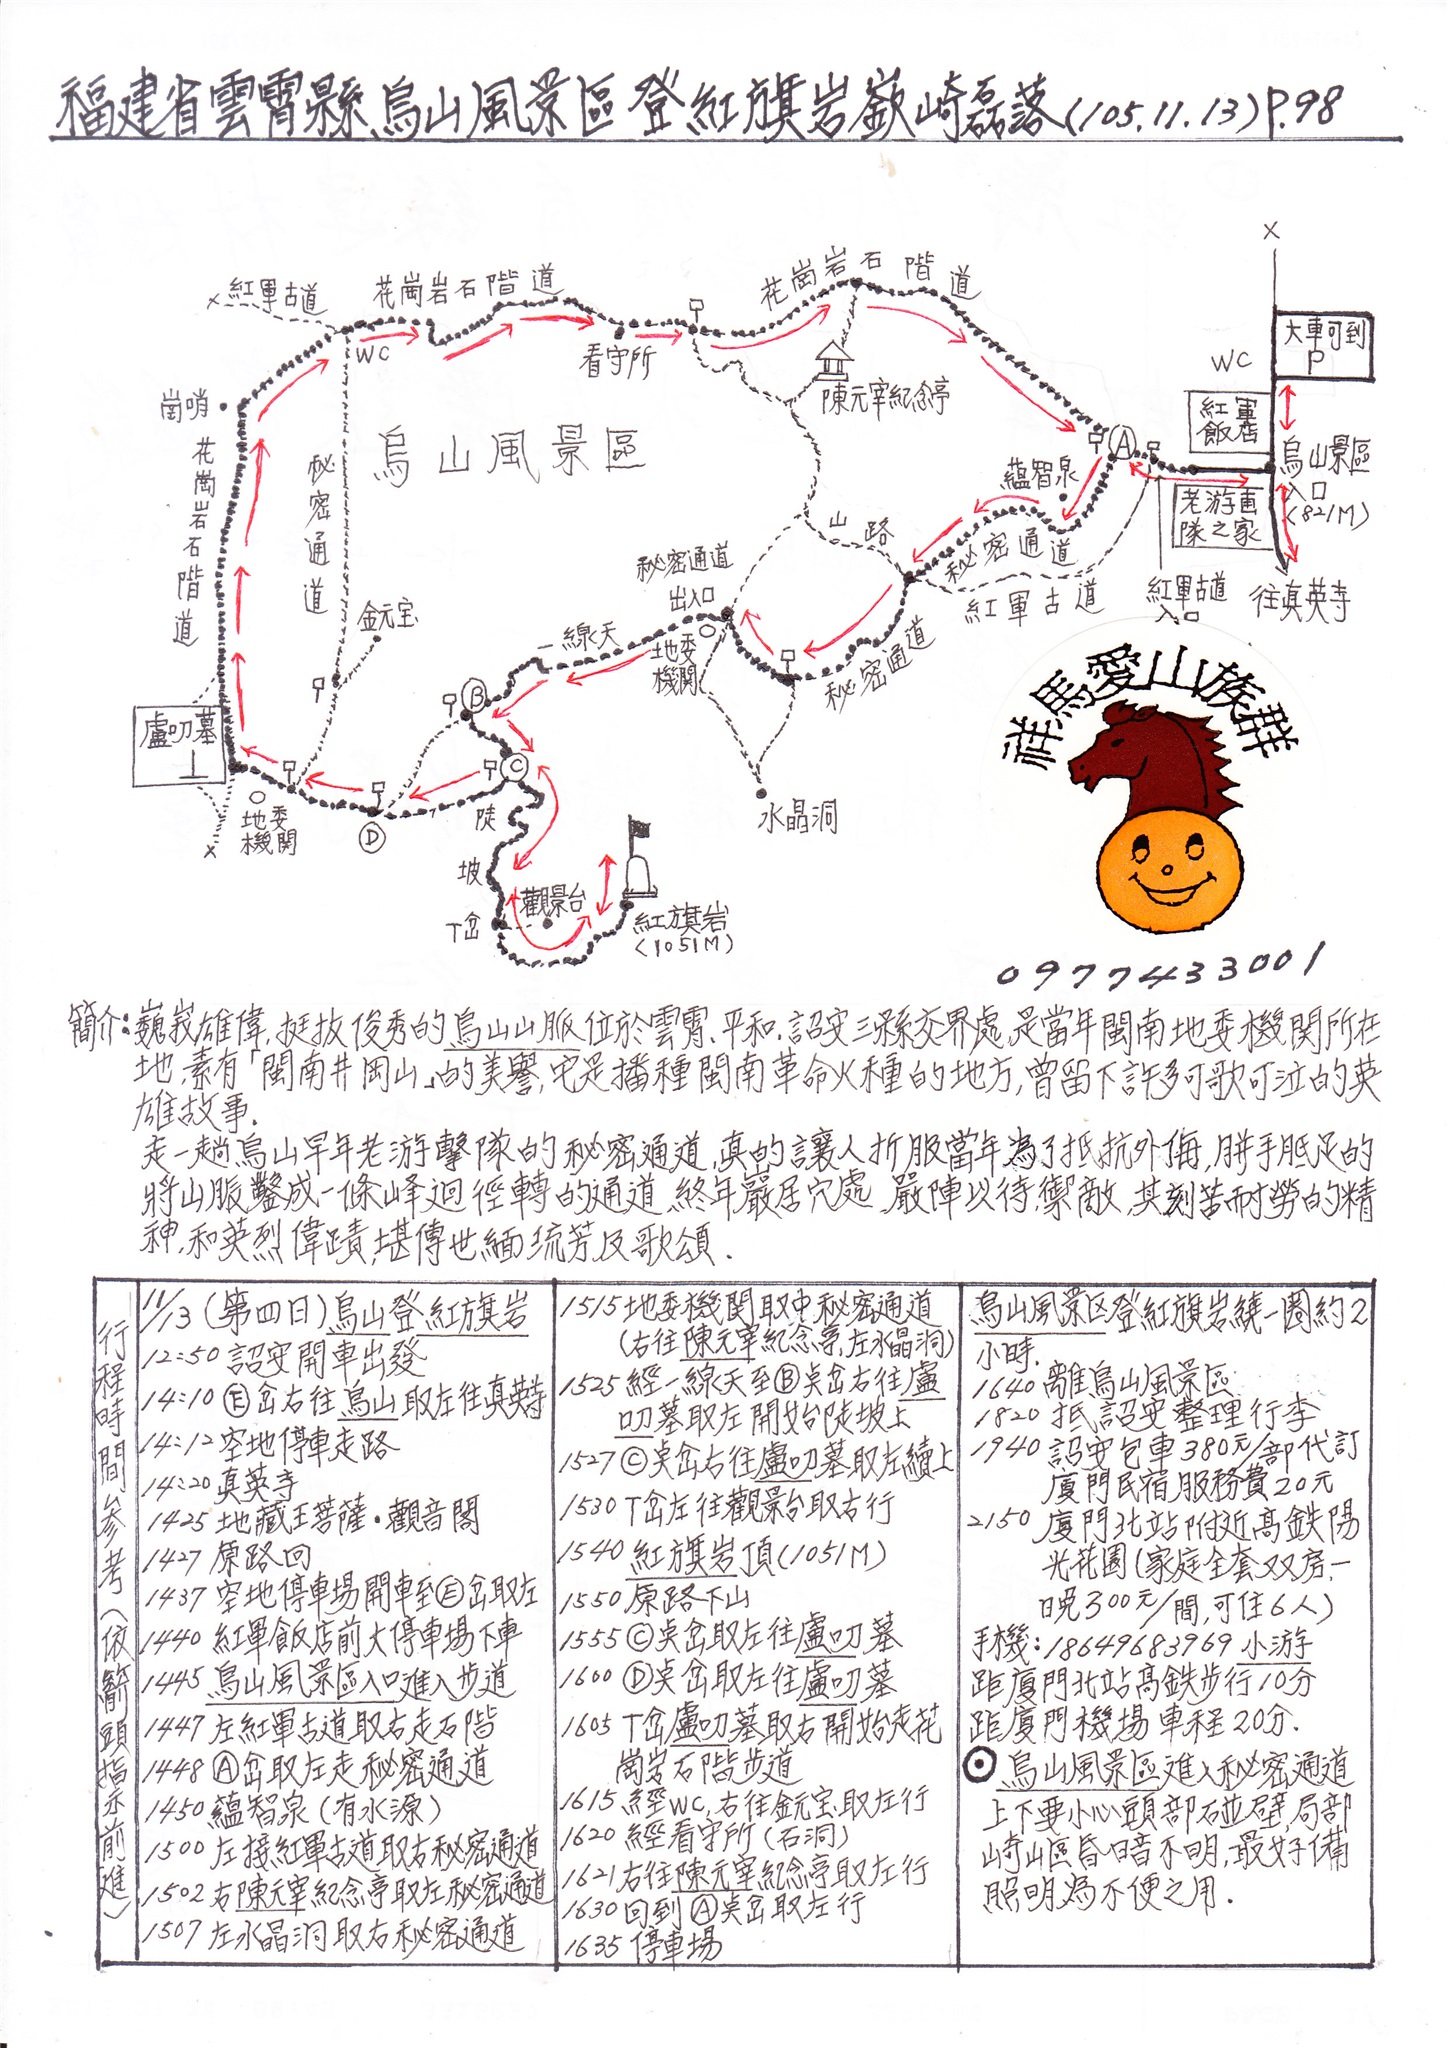 福建省雲霄縣烏山風景區登紅旗岩嶔崎磊落(105.11.13)P.98
X
X 紅軍古道
花崗岩石階道
花崗岩石階道
大車可到
P
WC
WC
看守所
陳元宰紀念亭
紅軍飯店
崗哨
烏山風景區
A
烏山景區
入口
(821M)
花崗岩石階道
秘密通道
蘊智泉
老游击
隊之家
山路
秘密通道
紅軍古道
紅軍古道
入口
往真英寺
秘密通道
出入口
金元宝
一線天
地委
機関
秘密通道
祥馬愛山族群
盧叨墓
B
C
D
地委
機関
X
陡坡
水晶洞
觀景台
T岔
紅旗岩
(1051M)
0977433001
簡介:巍峩雄偉,挺拔俊秀的烏山山脈位於雲霄、平和、詔安三縣交界處,是當年閩南地委機関所在
地,素有「閩南井岡山」的美譽,它是播種閩南革命火種的地方,曾留下許多可歌可泣的英
雄故事.
走一趟烏山早年老游擊隊的秘密通道,真的讓人折服當年為了抵抗外侮,胼手胝足的
將山脈鑿成一條峰迴徑轉的通道,終年巖居穴處,嚴陣以待,禦敵,其刻苦耐勞的精
神,和英烈偉蹟,堪傳世緬琉芳及歌頌.
行程時間参考(依箭頭指示前進)
11/13(第四日)烏山登紅旗岩
12:50 詔安開車出發
14:10 Ⓔ岔右往烏山取左往真英寺
14:12 空地停車走路
14:20 真英寺
1425 地藏王菩薩·觀音閣
1427 原路回
1437 空地停車場開車至Ⓔ岔取左
1440 紅軍飯店前大停車場下車
1445 烏山風景區入口進入步道
1447 左紅軍古道取右走石階
1448 Ⓐ岔取左走秘密通道
1450 蘊智泉(有水源)
1500 左接紅軍古道取右秘密通道
1502 右陳元宰紀念亭取左秘密通道
1507 左水晶洞取右秘密通道
1515 地委機関取中秘密通道
(右往陳元宰紀念亭,左水晶洞)
1525 經一線天至Ⓑ奌岔右往盧
叨墓取左開始陡坡上
1527 Ⓒ奌岔右往盧叨墓取左續上
1530 T岔左往觀景台取右行
1540 紅旗岩頂(1051M)
1550 原路下山
1555 Ⓒ奌岔取左往盧叨墓
1600 Ⓓ奌岔取左往盧叨墓
1605 T岔盧叨墓取右開始走花
崗岩石階步道
1615 經WC,右往金元宝,取左行
1620 經看守所(石洞)
1621 右往陳元宰紀念亭取左行
1630 回到Ⓐ奌岔取左行
1635 停車場
烏山風景区登紅旗岩繞一圈約2
小時.
1640 離烏山風景區
1820 抵詔安整理行李
1940 詔安包車380元/部代訂
廈門民宿服務費20元
2150 廈門北站附近高鉄陽
光花園(家庭全套双房一
晚300元/間,可住6人)
手機:18649683969小游
距廈門北站高鉄步行10分
距廈門機場車程20分.
⊙烏山風景區進入秘密通道
上下要小心頭部碰壁,局部
崎山區昏暗不明,最好備
照明為不便之用.